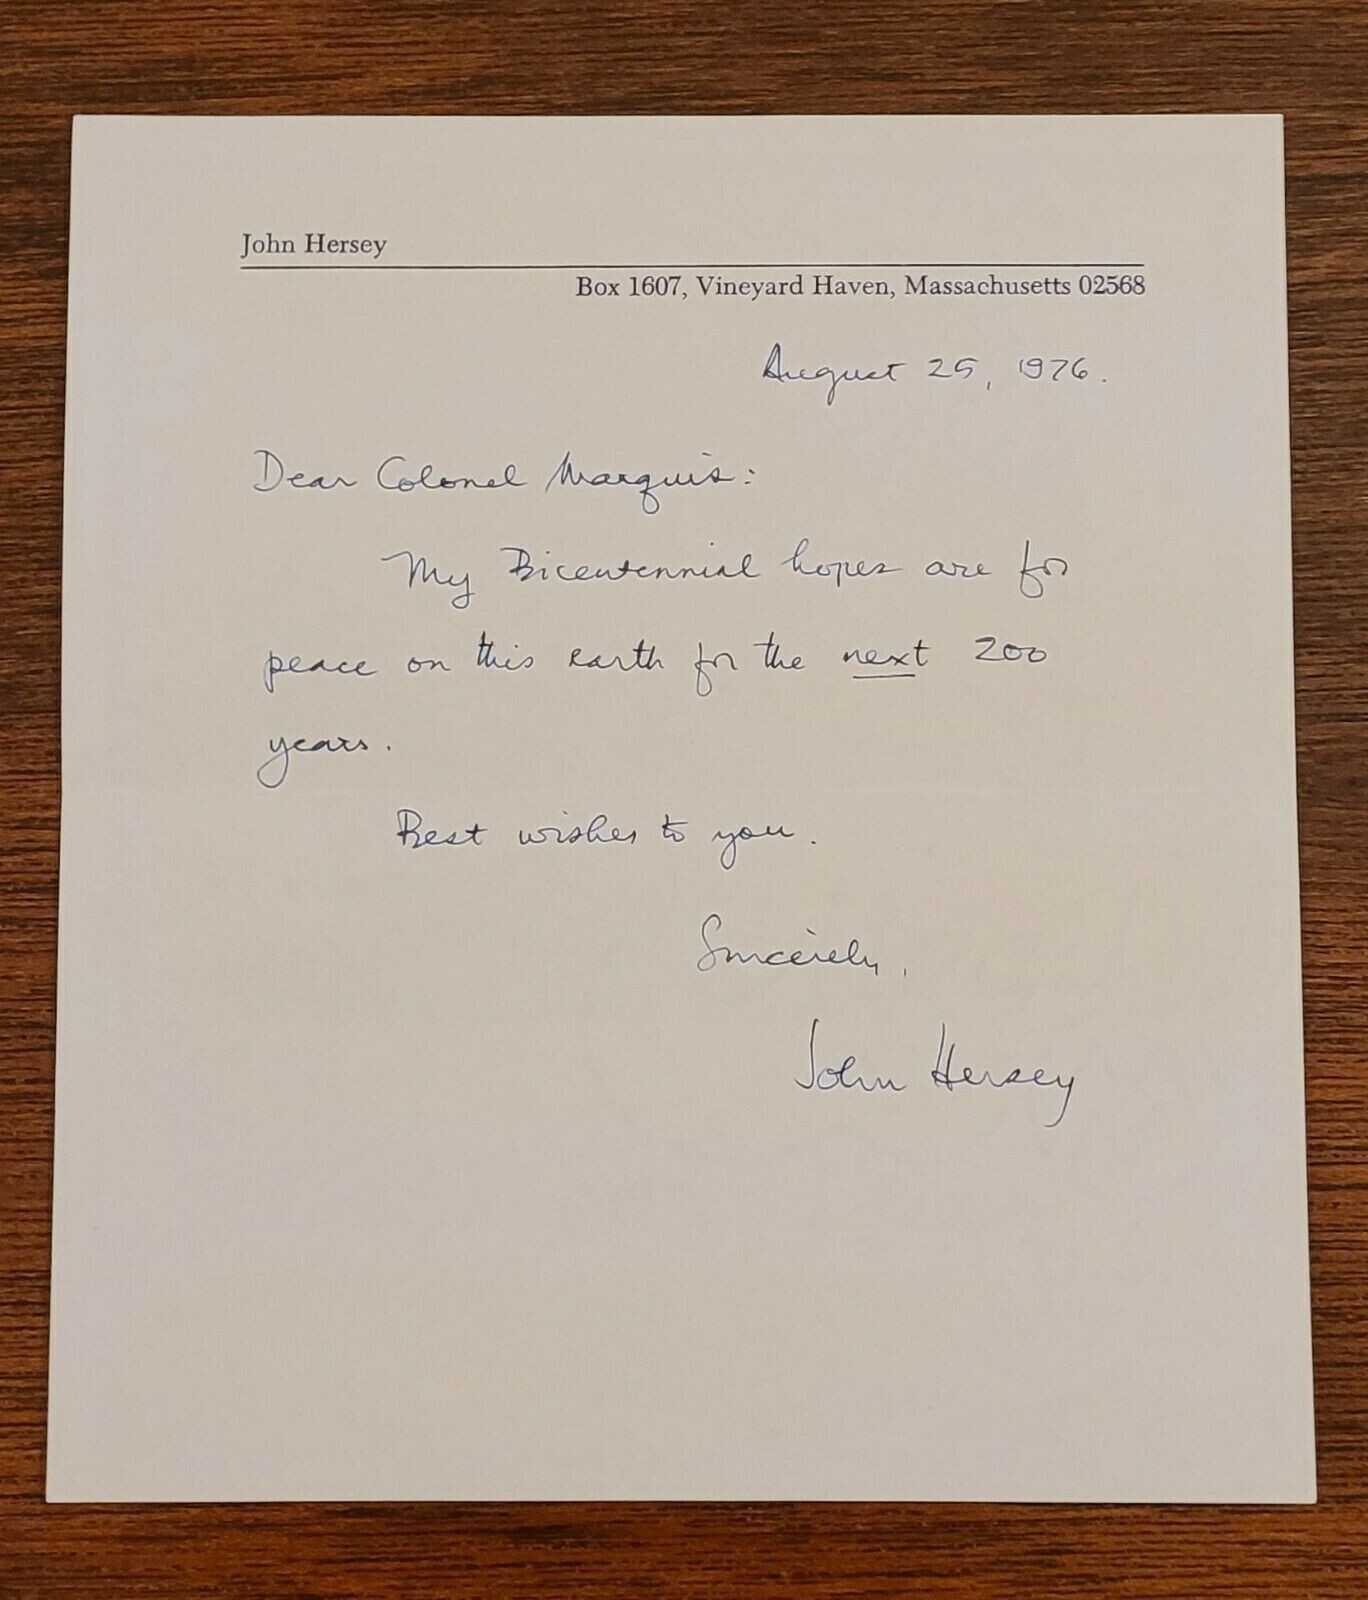 John Hersey
Box 1607, Vineyard Haven, Massachusetts 02568
August 25, 1976.
Dear Colonel Marquis:
My Bicentennial hopes are for
peace on this earth for the next 200
years.
Best wishes to you.
Sincerely,
John Hersey